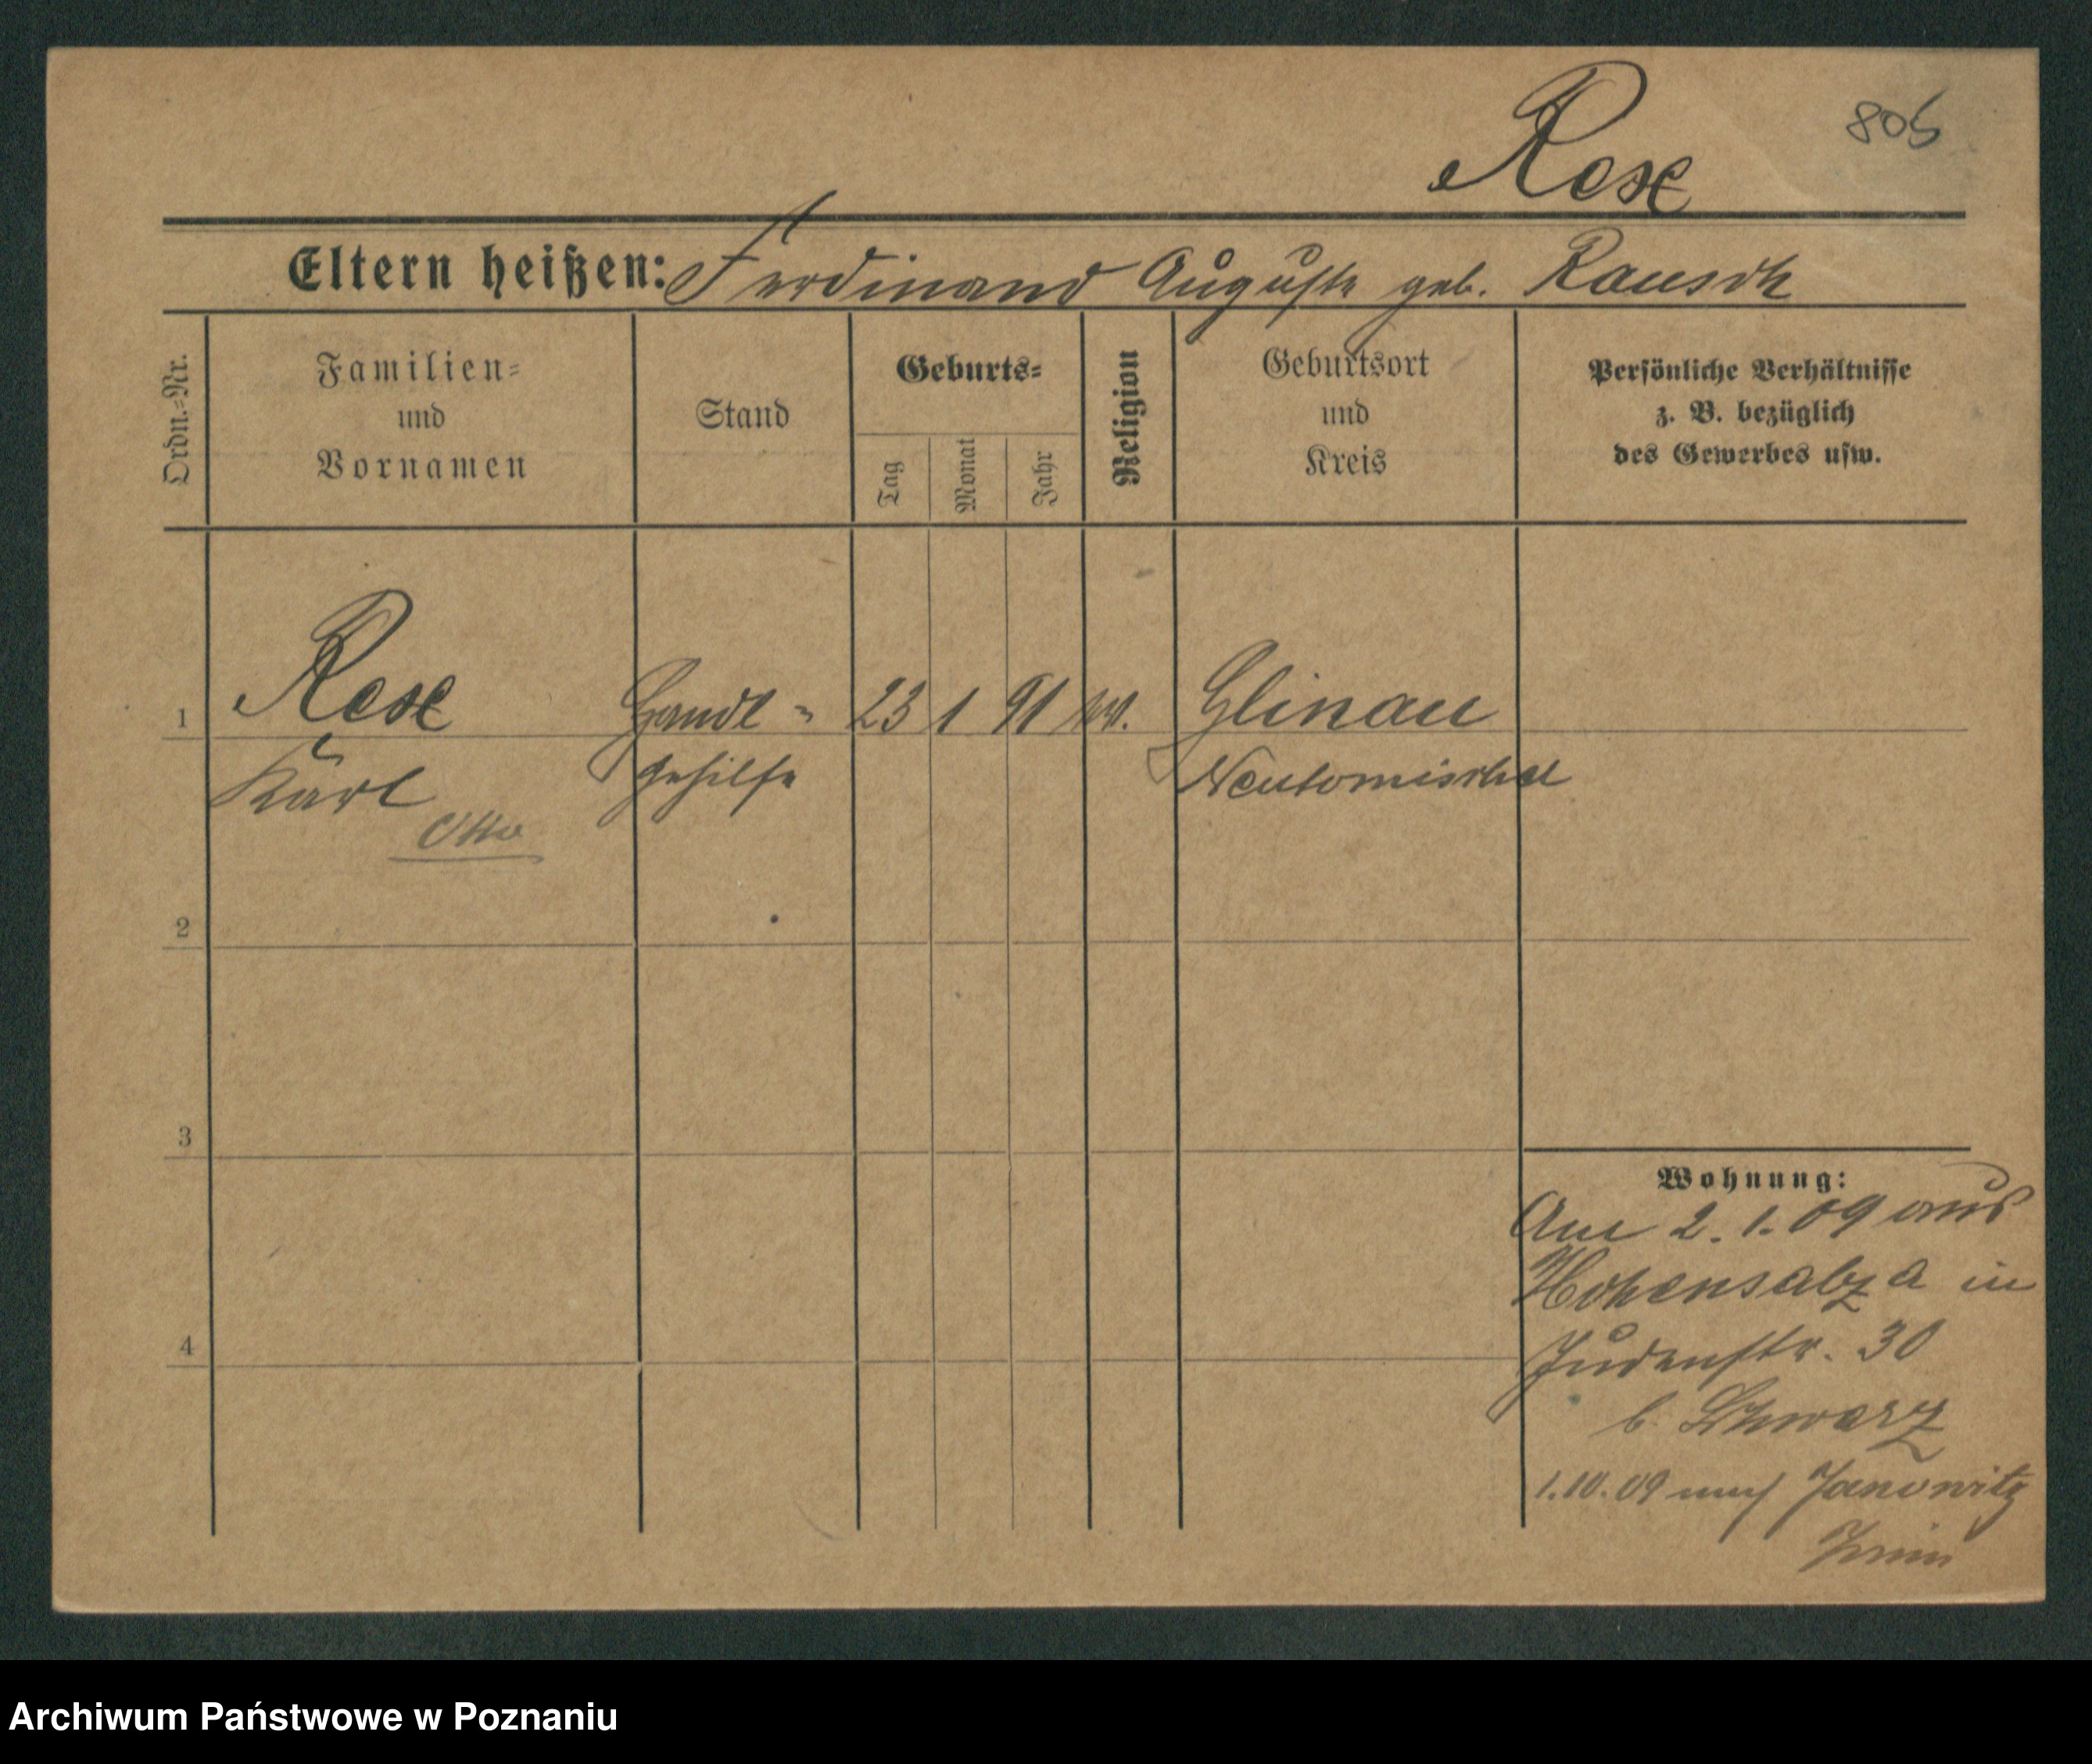 Rese
805
Eltern heißen: Ferdinand Auguste geb. Rausch
Ordn.=Nr.
Familien=
und
Vornamen
Stand
Geburts=
Tag
Monat
Jahr
Religion
Geburtsort
und
Kreis
Persönliche Verhältnisse
z. B. bezüglich
des Gewerbes usw.
1 Rese Handl= 23 1 91 ev. Glinau
Karl gehilfe Neutomischel
Otto
2
3
4
Wohnung:
Am 2. 1. 09 aus
Hohensalza in
Judenstr. 30
b. Schwarz
1. 10. 09 nach Janowitz
Znin
Archiwum Państwowe w Poznaniu